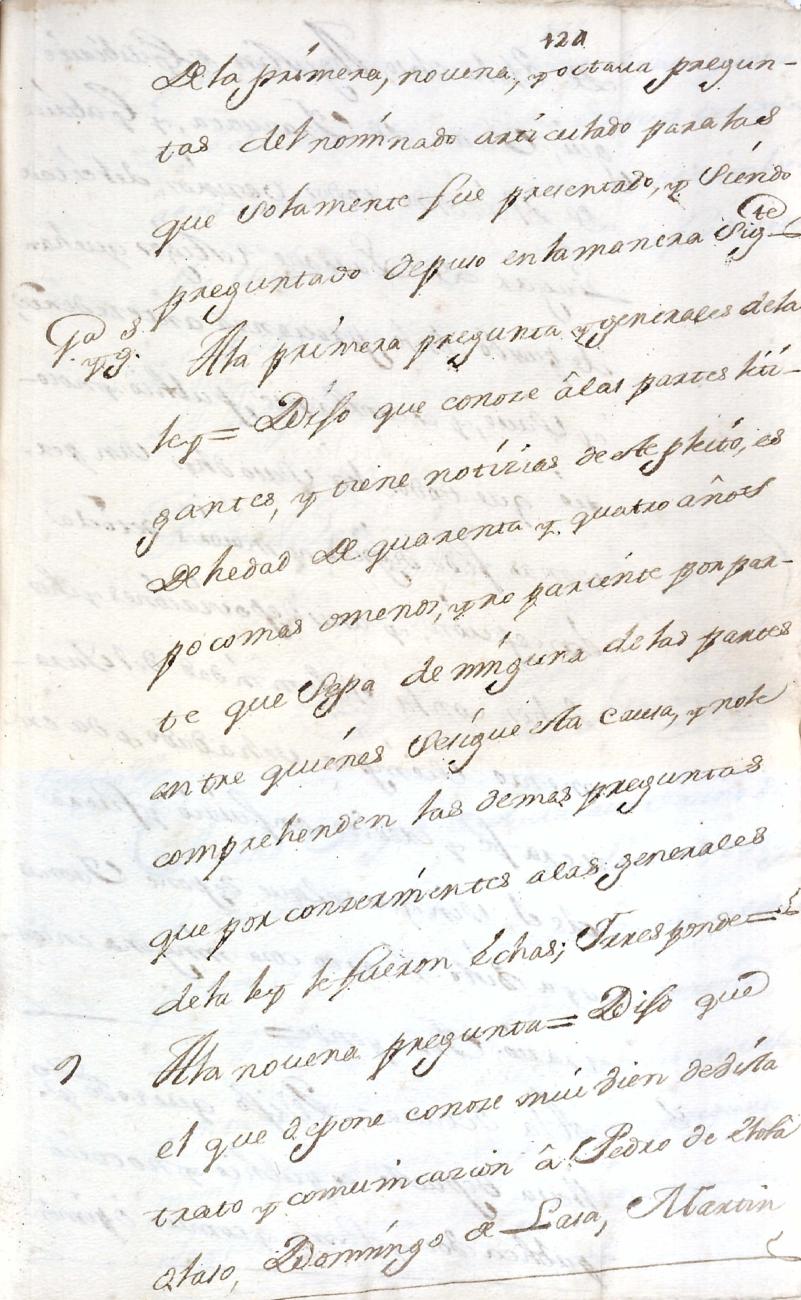 121
De la primera, novena, y octava pregun-
tas del nominado articulado para las
que solamente fue presentado, y siendo
preguntado depuso en la manera sigte
1a y g.s
A la primera pregunta y generales de la
ley = Dijo que conoze â las partes liti-
gantes, y tiene notizias de este pleito, es
de hedad de quarenta y quatro años
poco mas o menos, y no pariente por par-
te que sepa de ninguna de las partes
entre quienes se sigue esta causa, y no le
comprehenden las demas preguntas
que por conzernientes a las generales
de la ley le fueron echas; Y responde =
9
A la novena pregunta = Dijo que
el que depone conoze mui bien de vista
trato y comunicazion â Pedro de
Olaso, Domingo de Lasa, Martin